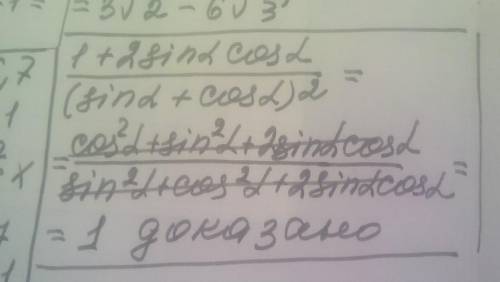 = 3√2 - 6√3
7
1 + 2sinα cosα
1
(sinα + cosα)2 =
= cos²α + sin²α + 2sinα cosα
x
sin²α + cos²α + 2sinα cosα =
= 1 доказано
1